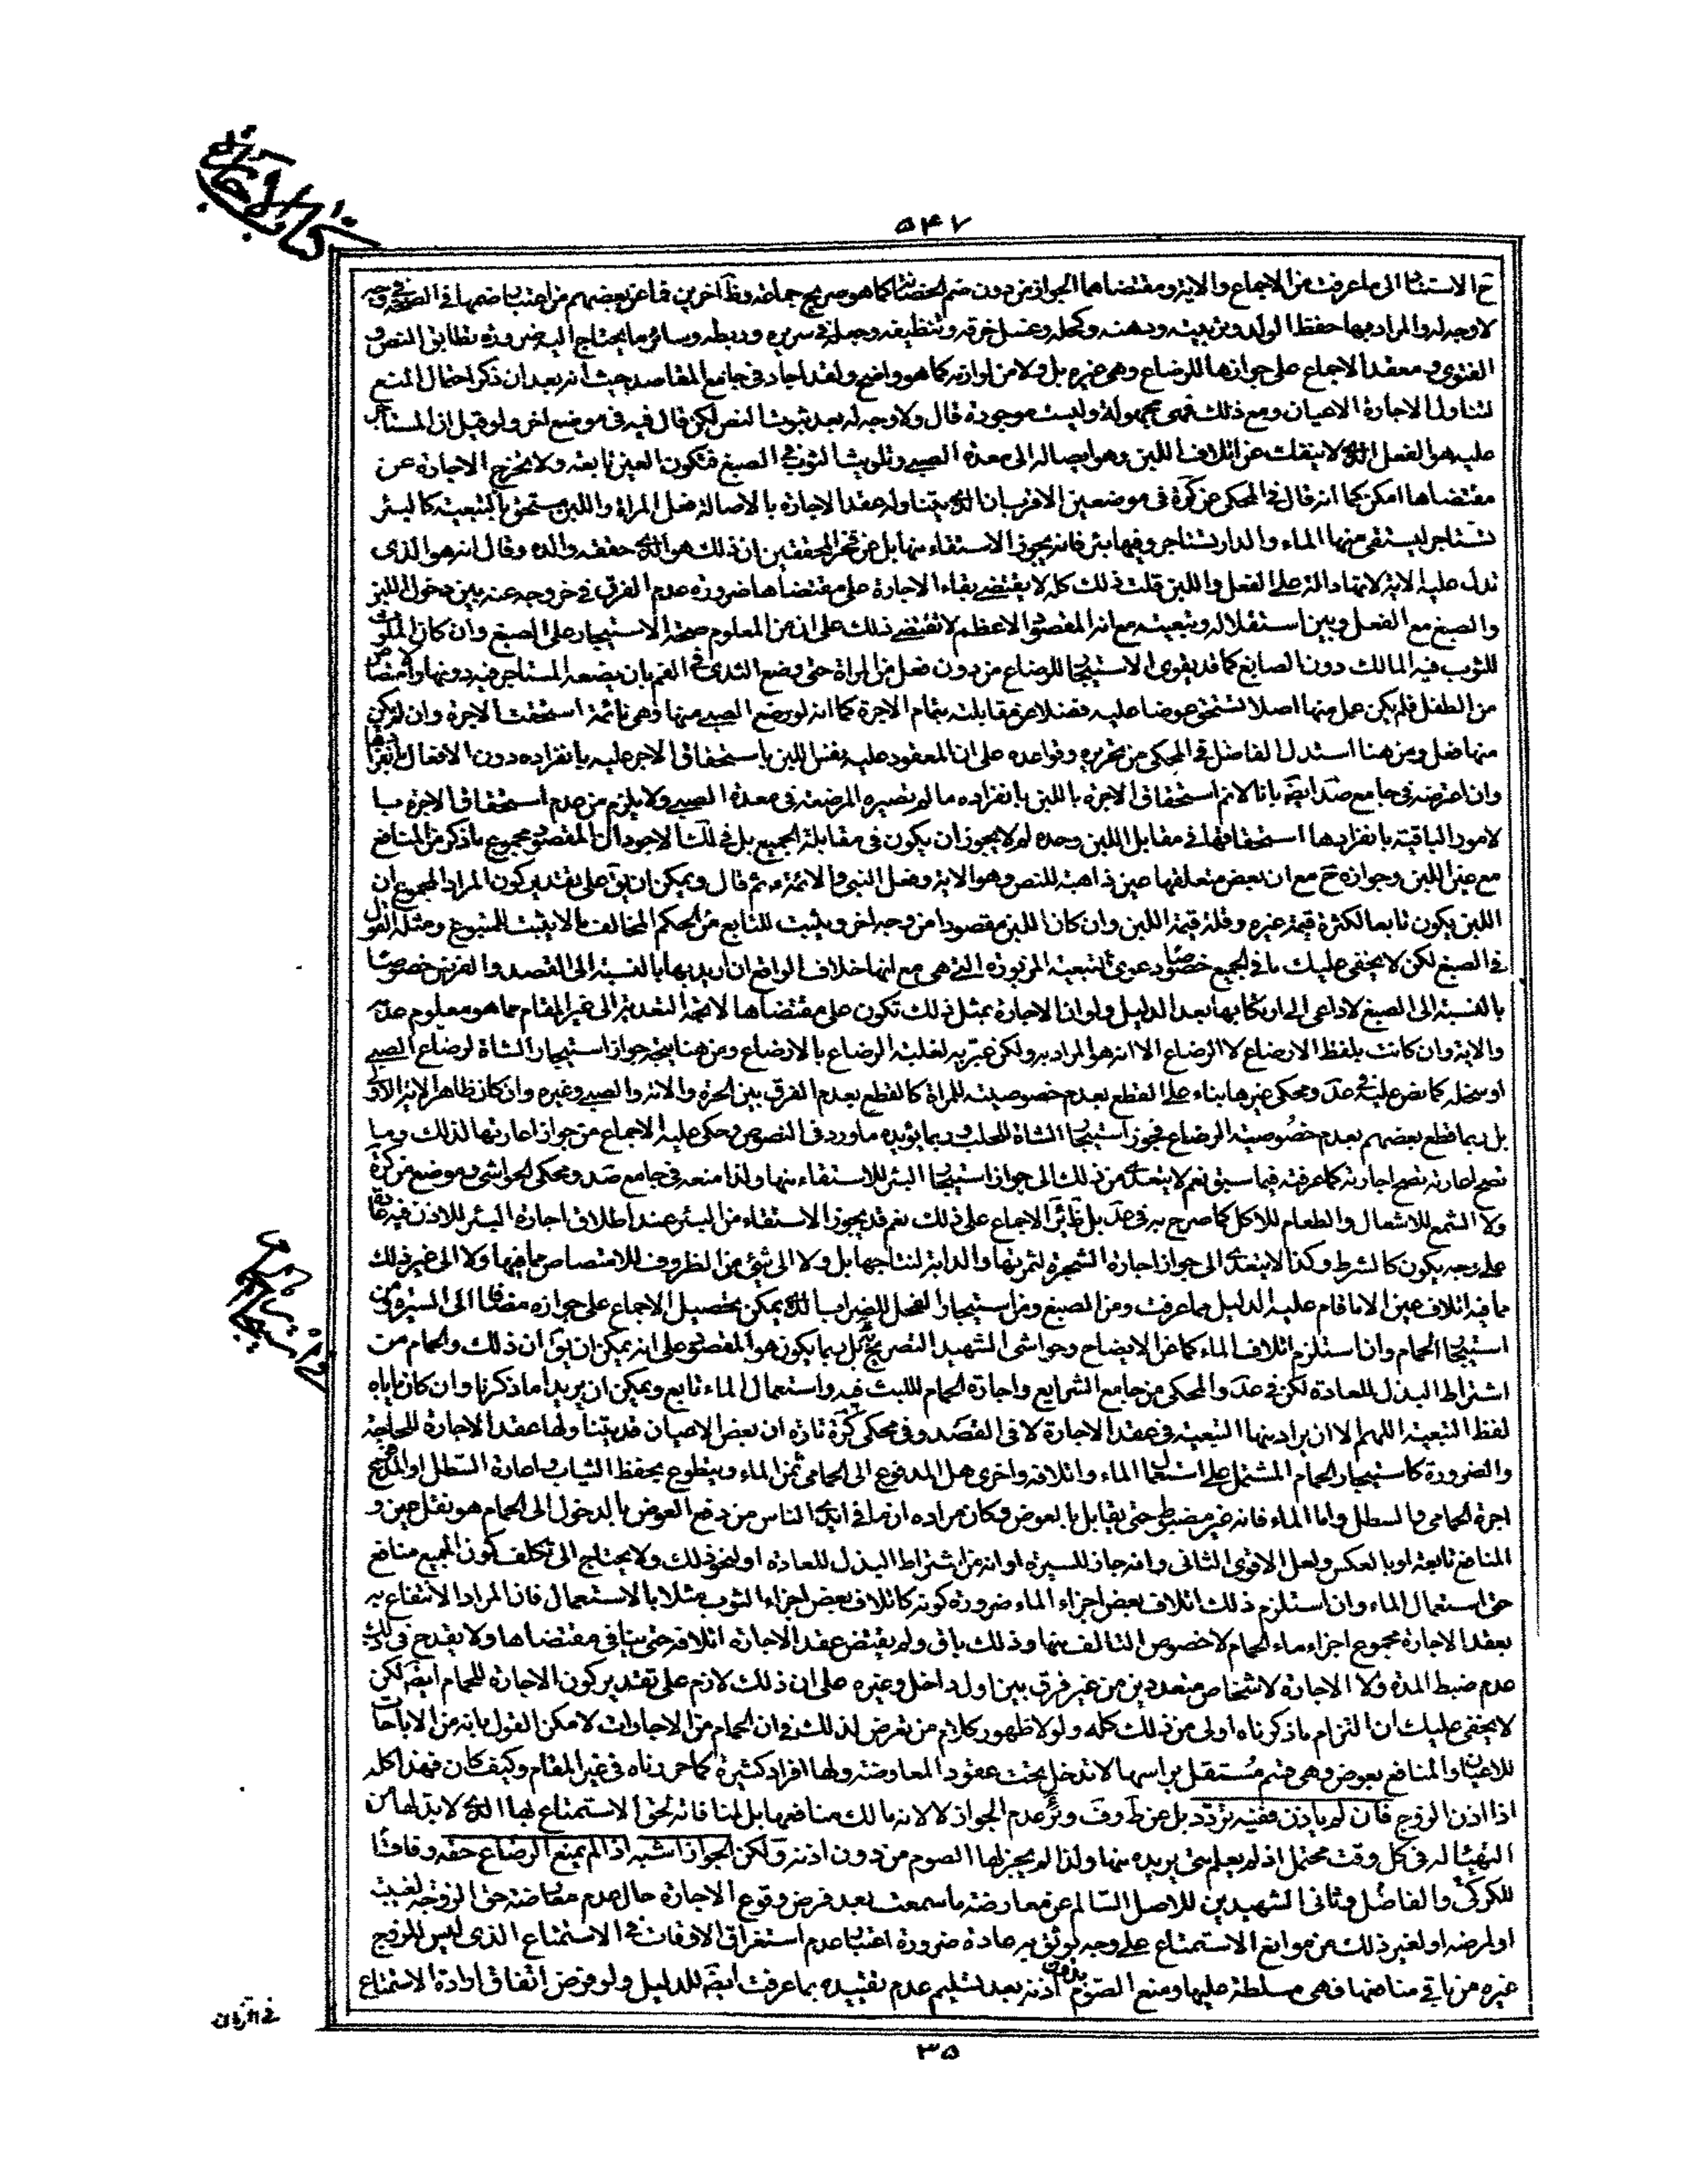 كتاب الاجارة
۵۴۷
ح الاستناد الى ما عرفت من الاجماع والاية ومقتضاهما الجواز من دون ضم الحضانة كما هو صريح جماعة وظ آخرين فما عن بعضهم من اعتبار ضمها في الصحة
لا وجه له والمراد بها حفظ الولد وتربيته ودهنه وكحله وغسل خرقه وتنظيفه وجعله في سريره وربطه وساير ما يحتاج اليه ضرورة تطابق النص و
الفتوى ومعقد الاجماع على جوازها للرضاع وهي غيره بل ولا من لوازمه كما هو واضح ولقد اجاد في جامع المقاصد حيث انه بعد ان ذكر احتمال المنع
لتناول الاجارة الاعيان ومع ذلك فهي مجهولة وليست موجودة قال ولا وجه له بعد ثبوت النص لكن قال فيه في موضع اخر ولو قيل ان المستاجر
عليه هو الفعل الذي لا ينفك عن اتلاف اللبن وهو ايصاله الى معدة الصبي وتلويث الثوب في الصبغ فتكون العين تابعة ولا يخرج الاجارة عن
مقتضاها امكن كما انه قال في المحكى عن كرة في موضعين الاقرب ان الذي يتناوله عقد الاجارة بالاصالة فعل المراة واللبن مستحق بالتبعية كالبئر
تستاجر ليستقى منها الماء والدار تستاجر وفيها بئر فانه يجوز الاستقاء منها بل عن فخر المحققين ان ذلك هو الذي حققه والده وقال انه هو الذى
تدل عليه الاية لانها دالة على الفعل واللبن قلت ذلك كله لا يقتضي بقاء الاجارة على مقتضاها ضرورة عدم الفرق في خروجه عنه بين دخول اللبن
والصبغ مع الفعل وبين استقلاله وتبعيته مع انه المقصود الاعظم لا تقتضي ذلك على ان من المعلوم صحة الاستيجار على الصبغ وان كان الملوث
للثوب فيه المالك دون الصابغ كما قد يقوى الاستيجار للرضاع من دون فعل من المراة حتى وضع الثدى في الفم بان يضعه المستاجر فيه دونها والامتصاص
من الطفل فلم يكن عمل منها اصلا لتستحق عوضا عليه فضلا عن مقابلته بتمام الاجرة كما انه لو رضع الصبي منها وهي نائمة استحقت الاجرة وان لم يكن
منها فعل ومن هنا استدل الفاضل في المحكى من تحريره وقواعده على ان المعقود عليه نفس اللبن باستحقاق الاجر عليه بانفراده دون الافعال بانفرادها
وان اعترضه في جامع صد ايض بانا لانم استحقاق الاجرة باللبن بانفراده ما لم تصيره المرضعة في معدة الصبي ولا يلزم من عدم استحقاق الاجرة با
لامور الباقية بانفرادها استحقاقها في مقابل اللبن وحده لم لا يجوز ان يكون في مقابلة الجميع
مع عين اللبن وجوازه ح مع ان بعض متعلقها عين ذاهبة للنص وهو الاية وفعل النبي والائمة ع ثم قال ويمكن ان يق على تقدير كون المراد المجموع ان
اللبن يكون تابعا لكثرة قيمة غيره وقلة قيمة اللبن وان كان اللبن مقصودا من وجه اخر ويثبت للتابع من الحكم المخالف ما لا يثبت للمتبوع ومثله القول
في الصبغ لكن لا يخفى عليك ما في الجميع خصوصا دعوى التبعية المزبورة التي هي مع انها خلاف الواقع ان اريد بها بالنسبة الى القصد والغرض خصوصا
بالنسبة الى الصبغ لا داعي الى ارتكابها بعد الدليل ولو ان الاجارة بمثل ذلك تكون على مقتضاها لاتجه التعدية الى غير المقام مما هو معلوم عدمه
والاية وان كانت بلفظ الارضاع لا الرضاع الا انه هو المراد به ولكن عبر به لغلبة الرضاع بالارضاع ومن هنا يتجه جواز استيجار الشاة لرضاع الصبي
او سخلة كما نص عليه في عد ومحكى غيرها بناء على القطع بعدم خصوصيته للمراة كالقطع بعدم الفرق بين الحرة والامة والصبي وغيره وان كان ظاهر الاية الاول
بل ربما قطع بعضهم بعدم خصوصية الرضاع فجوز استيجار الشاة للحلب وربما يؤيده ما ورد في النصوص وحكى عليه الاجماع من جواز اعارتها لذلك وما
تصح اعارته تصح اجارته كما عرفته فيما سبق نعم لا يتعدى من ذلك الى جواز استيجار البئر للاستقاء منها ولذا منعه في جامع صد ومحكى الحواشي وموضع من كرة
ولا الشمع للاشعال والطعام للاكل كما صرح به في عد بل ظاهر الاجماع على ذلك نعم قد يجوز الاستقاء من البئر عند اطلاق اجارة البئر للاذن فيه عادة
على وجه يكون كالشرط وكذا لا يتعدى الى جواز اجارة الشجرة لثمرتها والدابة لنتاجها بل ولا الى شئ من الظروف للامتصاص مما فيها ولا الى غير ذلك
مما فيه اتلاف عين الا ما قام عليه الدليل مما عرفت ومن الصبغ ومن استيجار الفحل للضراب الذي يمكن تحصيل الاجماع على جوازه مضافا الى السيرة ومن
استيجار الحمام وان استلزم اتلاف الماء كما عن الايضاح وحواشى الشهيد التصريح به بل ربما يكون هو المقصود على انه يمكن ان يق ان ذلك والحمام من
اشتراط البذل للعادة لكن في عد والمحكى من جامع الشرايع واجارة الحمام لللبث فيه واستعمال الماء تابع ويمكن ان يريدا ما ذكرنا وان كان ياباه
لفظ التبعية اللهم الا ان يراد منها التبعية في عقد الاجارة لا في القصد وفي محكى كرة تارة ان بعض الاعيان قد يتناولها عقد الاجارة للحاجة
والضرورة كاستيجار الحمام المشتمل على استعمال الماء واتلافه واخرى هل المدفوع الى الحمامي ثمن الماء ويتطوع بحفظ الثياب واعارة السطل او المدفوع
اجرة الحمامي والسطل واما الماء فانه غير مضبوط حتى يقابل بالعوض وكان مراده ان ما في ايدي الناس من دفع العوض بالدخول الى الحمام هو نقل عين و
المنافع تابعة او بالعكس ولعل الاقوى الثانى وانه جاز للسيرة او انه من اشتراط البذل للعادة او لنحو ذلك ولا يحتاج الى تكلف كون الجميع منافع
حتى استعمال الماء وان استلزم ذلك اتلاف بعض اجزاء الماء ضرورة كونه كاتلاف بعض اجزاء الثوب مثلا بالاستعمال فان المراد الانتفاع به
بعقد الاجارة مجموع اجزاء ماء الحمام لا خصوص التالف منها وذلك باق ولم يقتض عقد الاجارة اتلافه حتى ينافي مقتضاها ولا يقدح في ذلك
عدم ضبط المدة ولا الاجارة لاشخاص متعددين من غير فرق بين اول داخل وغيره على ان ذلك لازم على تقدير كون الاجارة للحمام ايض لكن
لا يخفى عليك ان التزام ما ذكرناه اولى من ذلك كله ولولا ظهور كلام من تعرض لذلك في ان الحمام من الاجارات لامكن القول بانه من الاباحات
للاعيان والمنافع بعوض وهي قسم مستقل براسها لا تدخل تحت عقود المعاوضة ولها افراد كثيرة كما حررناه في غير المقام وكيف كان فهذا كله
اذا اذن الزوج فان لم ياذن ففيه تردد بل عن ط وف وئر عدم الجواز لا لانه مالك منافعها بل لمنافاته لحق الاستمتاع بها الذي لا بد لها من
التهيئا له في كل وقت محتمل اذ لم يعلم متى يريده منها ولذا لم يجز لها الصوم من دون اذنه ولكن الجواز اشبه اذا لم يمنع الرضاع حقه وفاقا
للكركى والفاضل وثانى الشهيدين للاصل السالم عن معارضة ما سمعت بعد فرض وقوع الاجارة حال عدم معارضة حق الزوج لغيبته
او لمرضه او لغير ذلك من موانع الاستمتاع على وجه يوثق به عادة ضرورة اعتبار عدم استغراق الاوقات في الاستمتاع الذى ليس للزوج
غيره من باقي منافعها فهي مسلطة عليها ومنع الصوم بدون اذنه بعد تسليم عدم تقييده بما عرفت ايض للدليل ولو فرض اتفاق ارادة الاستمتاع
۳۵